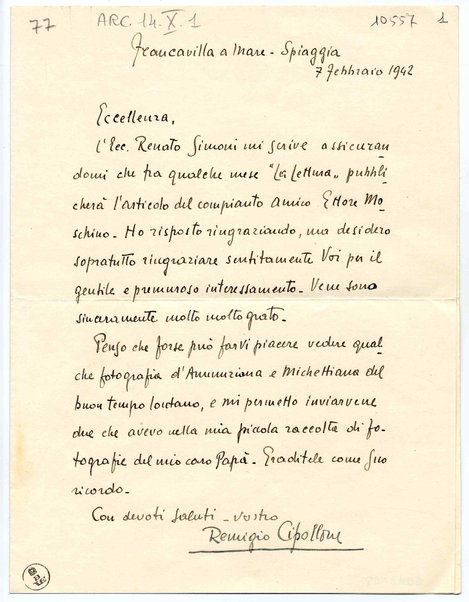 77 ARC. 14. X. 1 10557 1
Francavilla a Mare - Spiaggia
7 Febbraio 1942
Eccellenza,
l'Ecc. Renato Simoni mi scrive assicuran
domi che fra qualche mese "La Lettura„ pubbli
cherà l'articolo del compianto amico Ettore Mo_
schino_ Ho risposto ringraziando, ma desidero
sopratutto ringraziare sentitamente Voi per il
gentile e premuroso interessamento_ Vene sono
sinceramente molto molto grato_
Penso che forse può farvi piacere vedere qual_
che fotografia d'Annunziana e Michettiana del
buon tempo lontano, e mi permetto inviarvene
due che avevo nella mia piccola raccolta di fo_
tografie del mio caro Papà_ Graditele come Suo
ricordo_
Con devoti saluti_ vostro
Remigio Cipollone